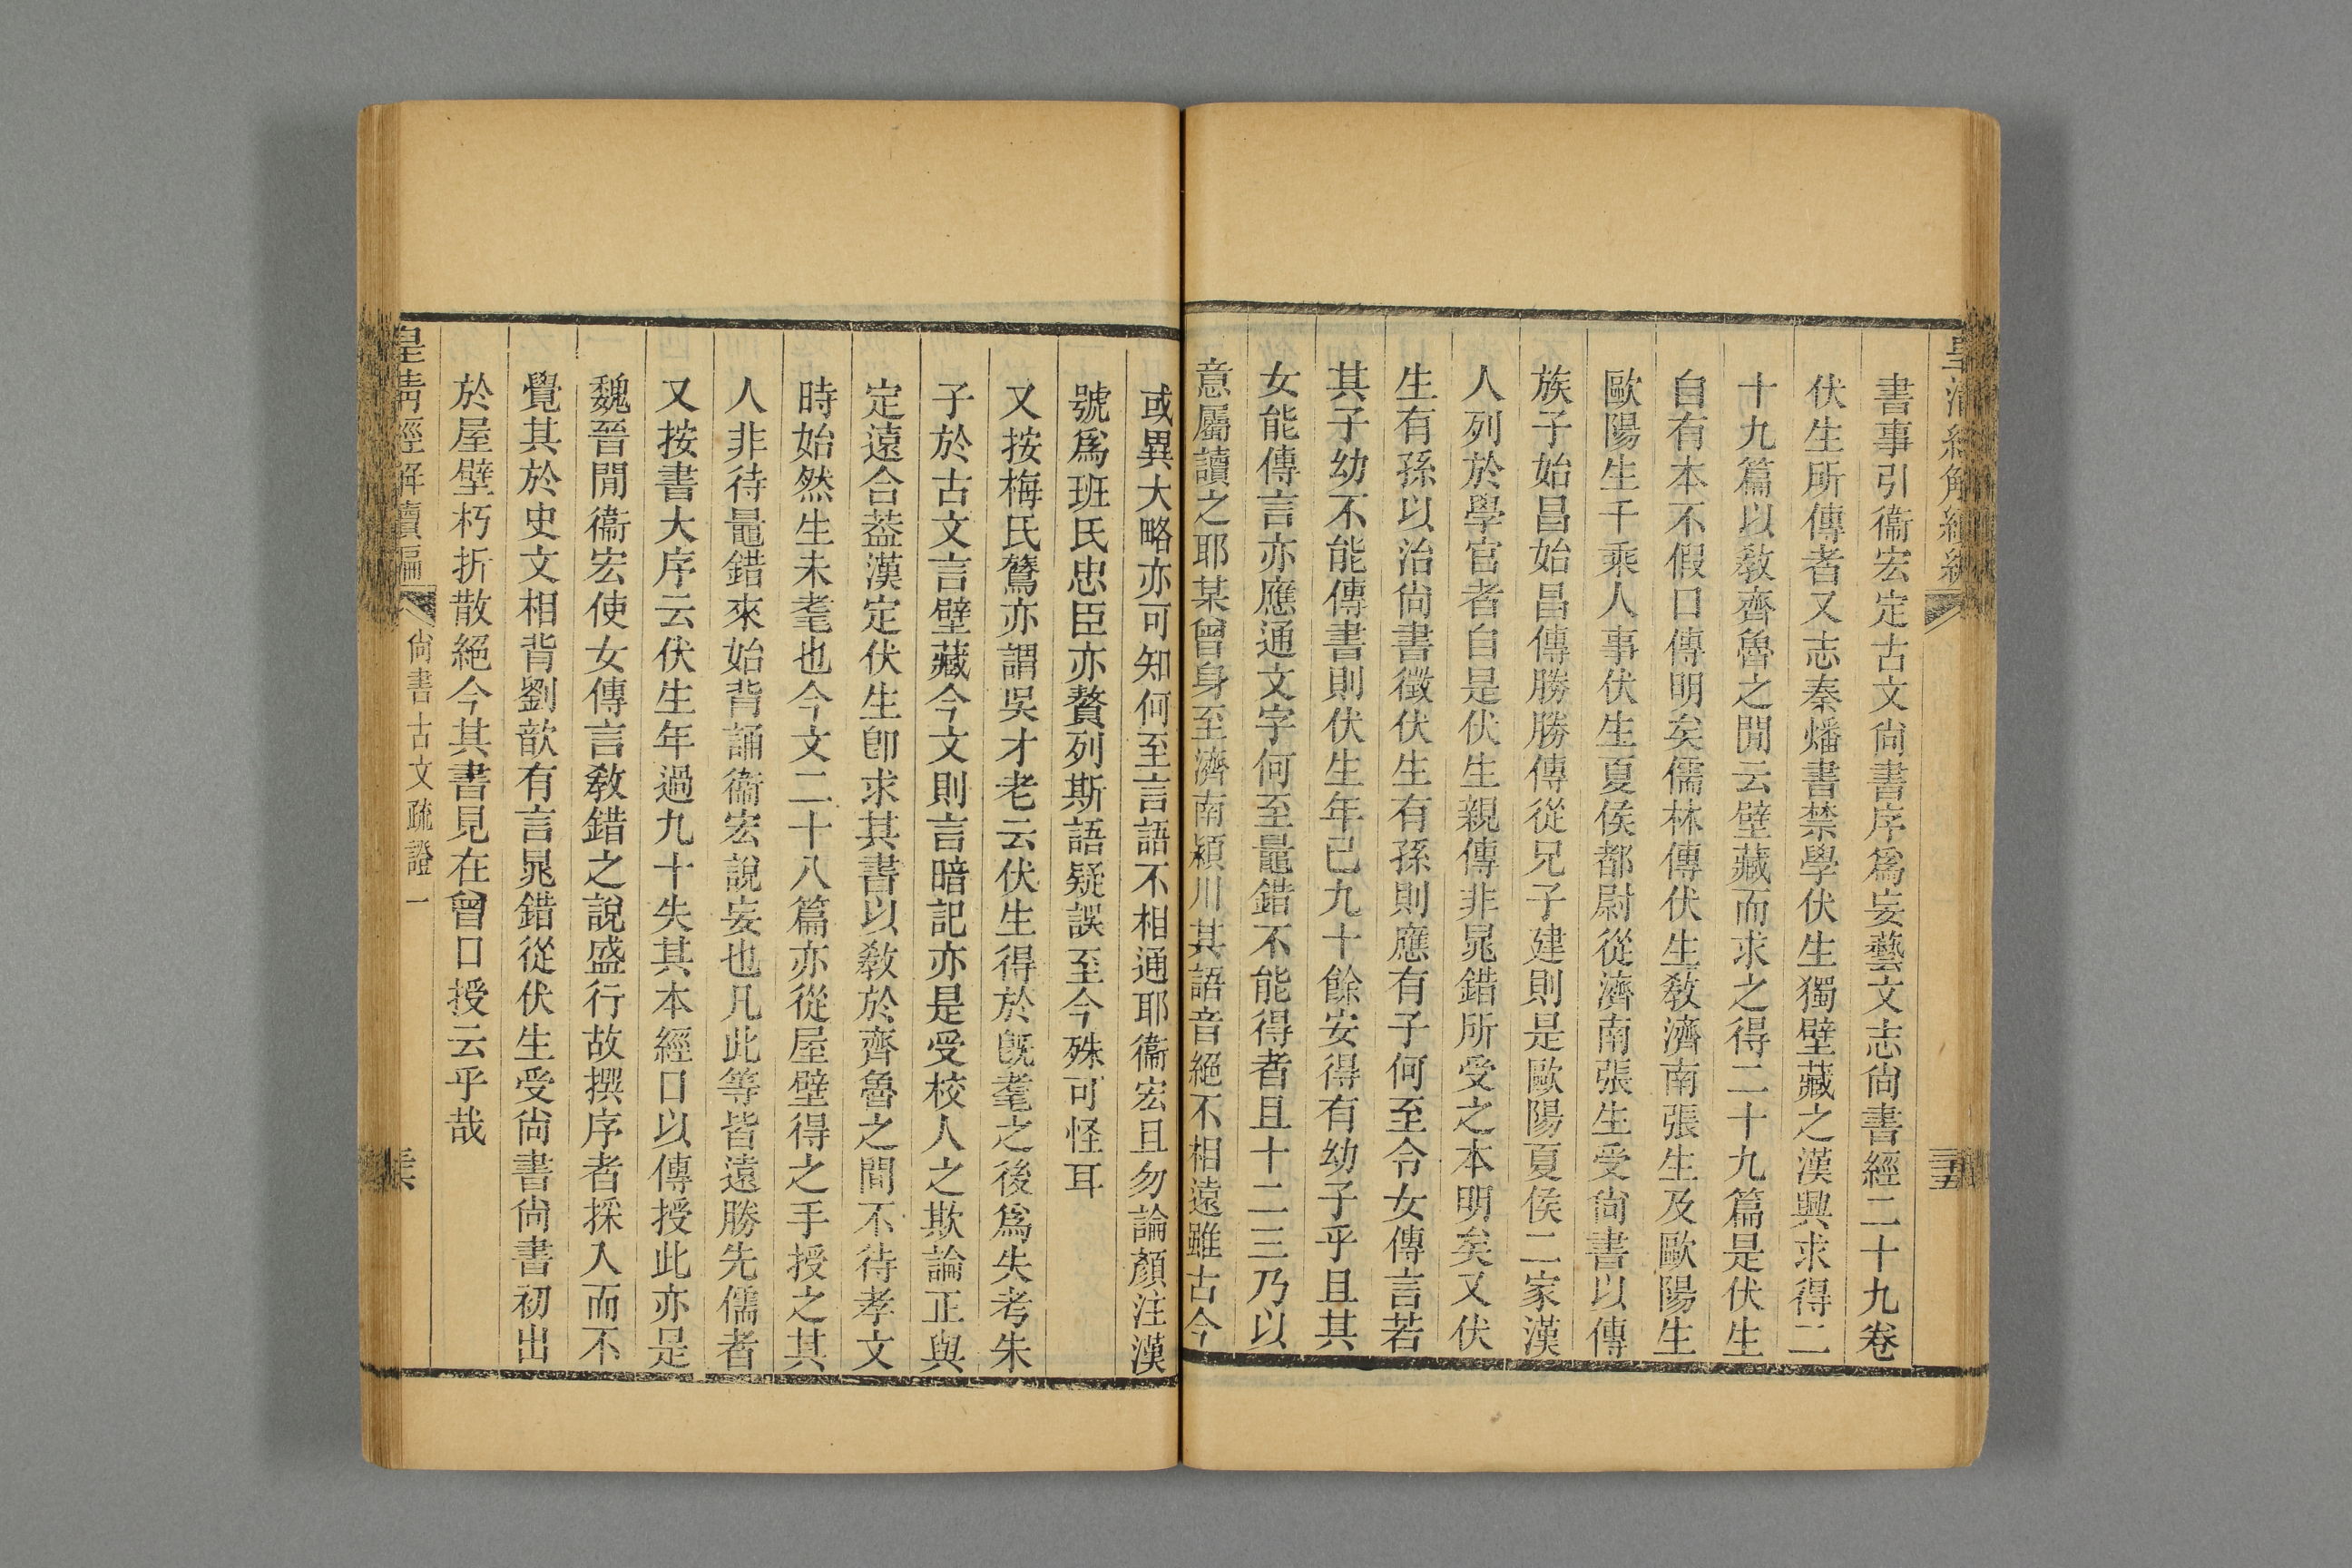 書事引衞宏定古文尙書序爲妄藝文志尙書經二十九卷
伏生所傳者又志秦燔書禁學伏生獨壁藏之漢興求得二
十九篇以敎齊魯之閒云壁藏而求之得二十九篇是伏生
自有本不假口傳明矣儒林傳伏生敎濟南張生及歐陽生
歐陽生千乘人事伏生夏侯都尉從濟南張生受尙書以傳
族子始昌始昌傳勝勝傳從兄子建則是歐陽夏侯二家漢
人列於學官者自是伏生親傳非晁錯所受之本明矣又伏
生有孫以治尙書徵伏生有孫則應有子何至令女傳言若
其子幼不能傳書則伏生年已九十餘安得有幼子乎且其
女能傳言亦應通文字何至鼂錯不能得者且十二三乃以
意屬讀之耶某曾身至濟南潁川其語音絕不相遠雖古今
或異大略亦可知何至言語不相通耶衞宏且勿論顏注漢
號爲班氏忠臣亦贅列斯語疑誤至今殊可怪耳
又按梅氏鷟亦謂吳才老云伏生得於旣耄之後爲失考朱
子於古文言壁藏今文則言暗記亦是受校人之欺論正與
定遠合葢漢定伏生卽求其書以敎於齊魯之間不待孝文
時始然生未耄也今文二十八篇亦從屋壁得之手授之其
人非待鼂錯來始背誦衞宏說妄也凡此等皆遠勝先儒者
又按書大序云伏生年過九十失其本經口以傳授此亦是
魏晉閒衞宏使女傳言敎錯之說盛行故撰序者採入而不
覺其於史文相背劉歆有言晁錯從伏生受尙書尙書初出
於屋壁朽折散絕今其書見在曾口授云乎哉
皇淸經解續編
尙書古文疏證一